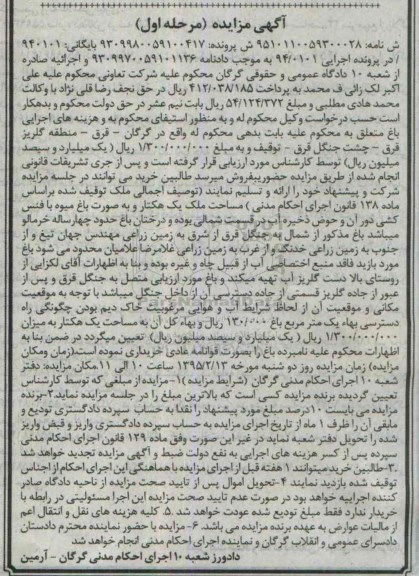 آگهی مزایده (مرحله اول)
ش نامه: ۹۵۱۰۱۱۰۰۵۹۳۰۰۰۲۸ ش پرونده: ۹۳۰۹۹۸۰۰۵۹۱۰۰۴۱۷ بایگانی: ۹۴۰۱۰۱
/ در پرونده اجرایی ۹۴/۰۱۰۱ به موجب دادنامه ۹۳۰۹۹۷۰۰۵۹۱۰۱۱۳۶ و اجرائیه صادره
از شعبه ۱۰ دادگاه عمومی و حقوقی گرگان محکوم علیه شرکت تعاونی محکوم علیه علی
اکبر لک زائی ف محمد به پرداخت ۴۱۲/۰۳۸/۱۸۵ ریال در حق نجف رضا قلی نژاد با وکالت
محمد هادی مطلبی و مبلغ ۵۴/۱۲۴/۳۷۲ ریال بابت نیم عشر در حق دولت محکوم و بدهکار
است حسب درخواست وکیل محکوم له و به منظور استیفای محکوم به و هزینه های اجرایی
باغ متعلق به محکوم علیه بابت بدهی محکوم له واقع در گرگان - قرق - منطقه گلریز
قرق - چشت جنگل قرق - توقیف و به مبلغ ۱/۳۰۰/۰۰۰/۰۰۰ ریال ( یک میلیارد و سیصد
میلیون ریال) توسط کارشناس مورد ارزیابی قرار گرفته است و پس از جری تشریفات قانونی
انجام شده از طریق مزایده حضوری بفروش میرسد طالبین خرید می توانند در جلسه مزایده
شرکت و پیشنهاد خود را ارائه و تسلیم نمایند (توصیف اجمالی ملک توقیف شده براساس
ماده ۱۳۸ قانون اجرای احکام مدنی ) مساحت ملک یک هکتار و به صورت باغ میوه با فنس
کشی دور آن و حوض ذخیره آب در قسمت شمالی بوده و درختان باغ حدود چهارساله خرمالو
میباشد باغ مذکور از شمال به جنگل قرق از شرق به زمین زراعی مهندس جهان تیغ و از
جنوب به زمین زراعی خدنگ و از غرب به زمین زراعی غلامرضا غلامیان محدود می شود باغ
مورد بازید فاقد منبع اختصاصی آب از قبیل چاه و غیره بوده و بنا به اظهارات آقای لکزایی از
روستای بالا دست گلریز آب تهیه میکند و باغ مورد ارزیابی متصل به جنگل قرق و پس از
عبور از جاده گلریز قسمتی از جاده دسترسی آن از داخل جنگل میباشد با توجه به موقعیت
مکانی و موقعیت آن از لحاظ شرایط آب و هوایی مرغوبیت خاک دیم بودن چگونگی راه
دسترسی بهاء یک متر مربع باغ ۱۳۰/۰۰۰ ریال و بهاء کل آن به مساحت یک هکتار به میزان
۱/۳۰۰/۰۰۰/۰۰۰ ریال ( یک میلیارد و سیصد میلیون ریال) تعیین میگردد در ضمن بنا به
اظهارات محکوم علیه نامبرده باغ را بصورت قولنامه عادی خریداری نموده است.(زمان ومکان
مزایده) زمان مزایده روز دو شنبه مورخه ۱۳۹۵/۲/۱۳ ساعت ۱۰ الی ۱۱.مکان مزایده: دفتر
شعبه ۱۰ اجرای احکام مدنی گرگان (شرایط مزایده) ۱- مزایده از مبلغی که توسط کارشناس
تعیین گردیده برنده مزایده کسی است که بالاترین مبلغ را در جلسه مزایده نماید.۲-برنده
مزایده می بایست ۱۰درصد مبلغ مورد پیشنهاد را نقدا به حساب سپرده دادگستری تودیع و
مابقی آن را ظرف ۱ ماه از تاریخ اجرای مزایده به حساب سپرده دادگستری واریز و قبض واریز
شده را تحویل دفتر شعبه نماید در غیر این صورت وفق ماده ۱۲۹ قانون اجرای احکام مدنی
سپرده پس از کسر هزینه های اجرایی به نفع دولت ضبط و آگهی مزایده تجدید خواهد شد
.۳-طالبین خرید میتوانند ۱ هفته قبل از اجرای مزایده با هماهنگی این اجرای احکام از اجناس
توقیف شده بازدید نمایند ۴-تحویل اموال پس از تایید صحت مزایده از ناحیه دادگاه صادر
کننده اجراییه خواهد بود در صورت عدم تایید صحت مزایده این اجرا مسئولیتی در رابطه با
خریدار ندارد فقط مبلغ تودیع شده عودت خواهد شد .۵. کلیه هزینه های نقل و انتقال اعم
از مالیات عوارض به عهده برنده مزایده می باشد. ۶- مزایده با حضور نماینده محترم دادستان
دادسرای عمومی و انقلاب گرگان و نماینده اجرای احکام مدنی انجام خواهد شد
دادورز شعبه ۱۰ اجرای احکام مدنی گرگان - آرمین